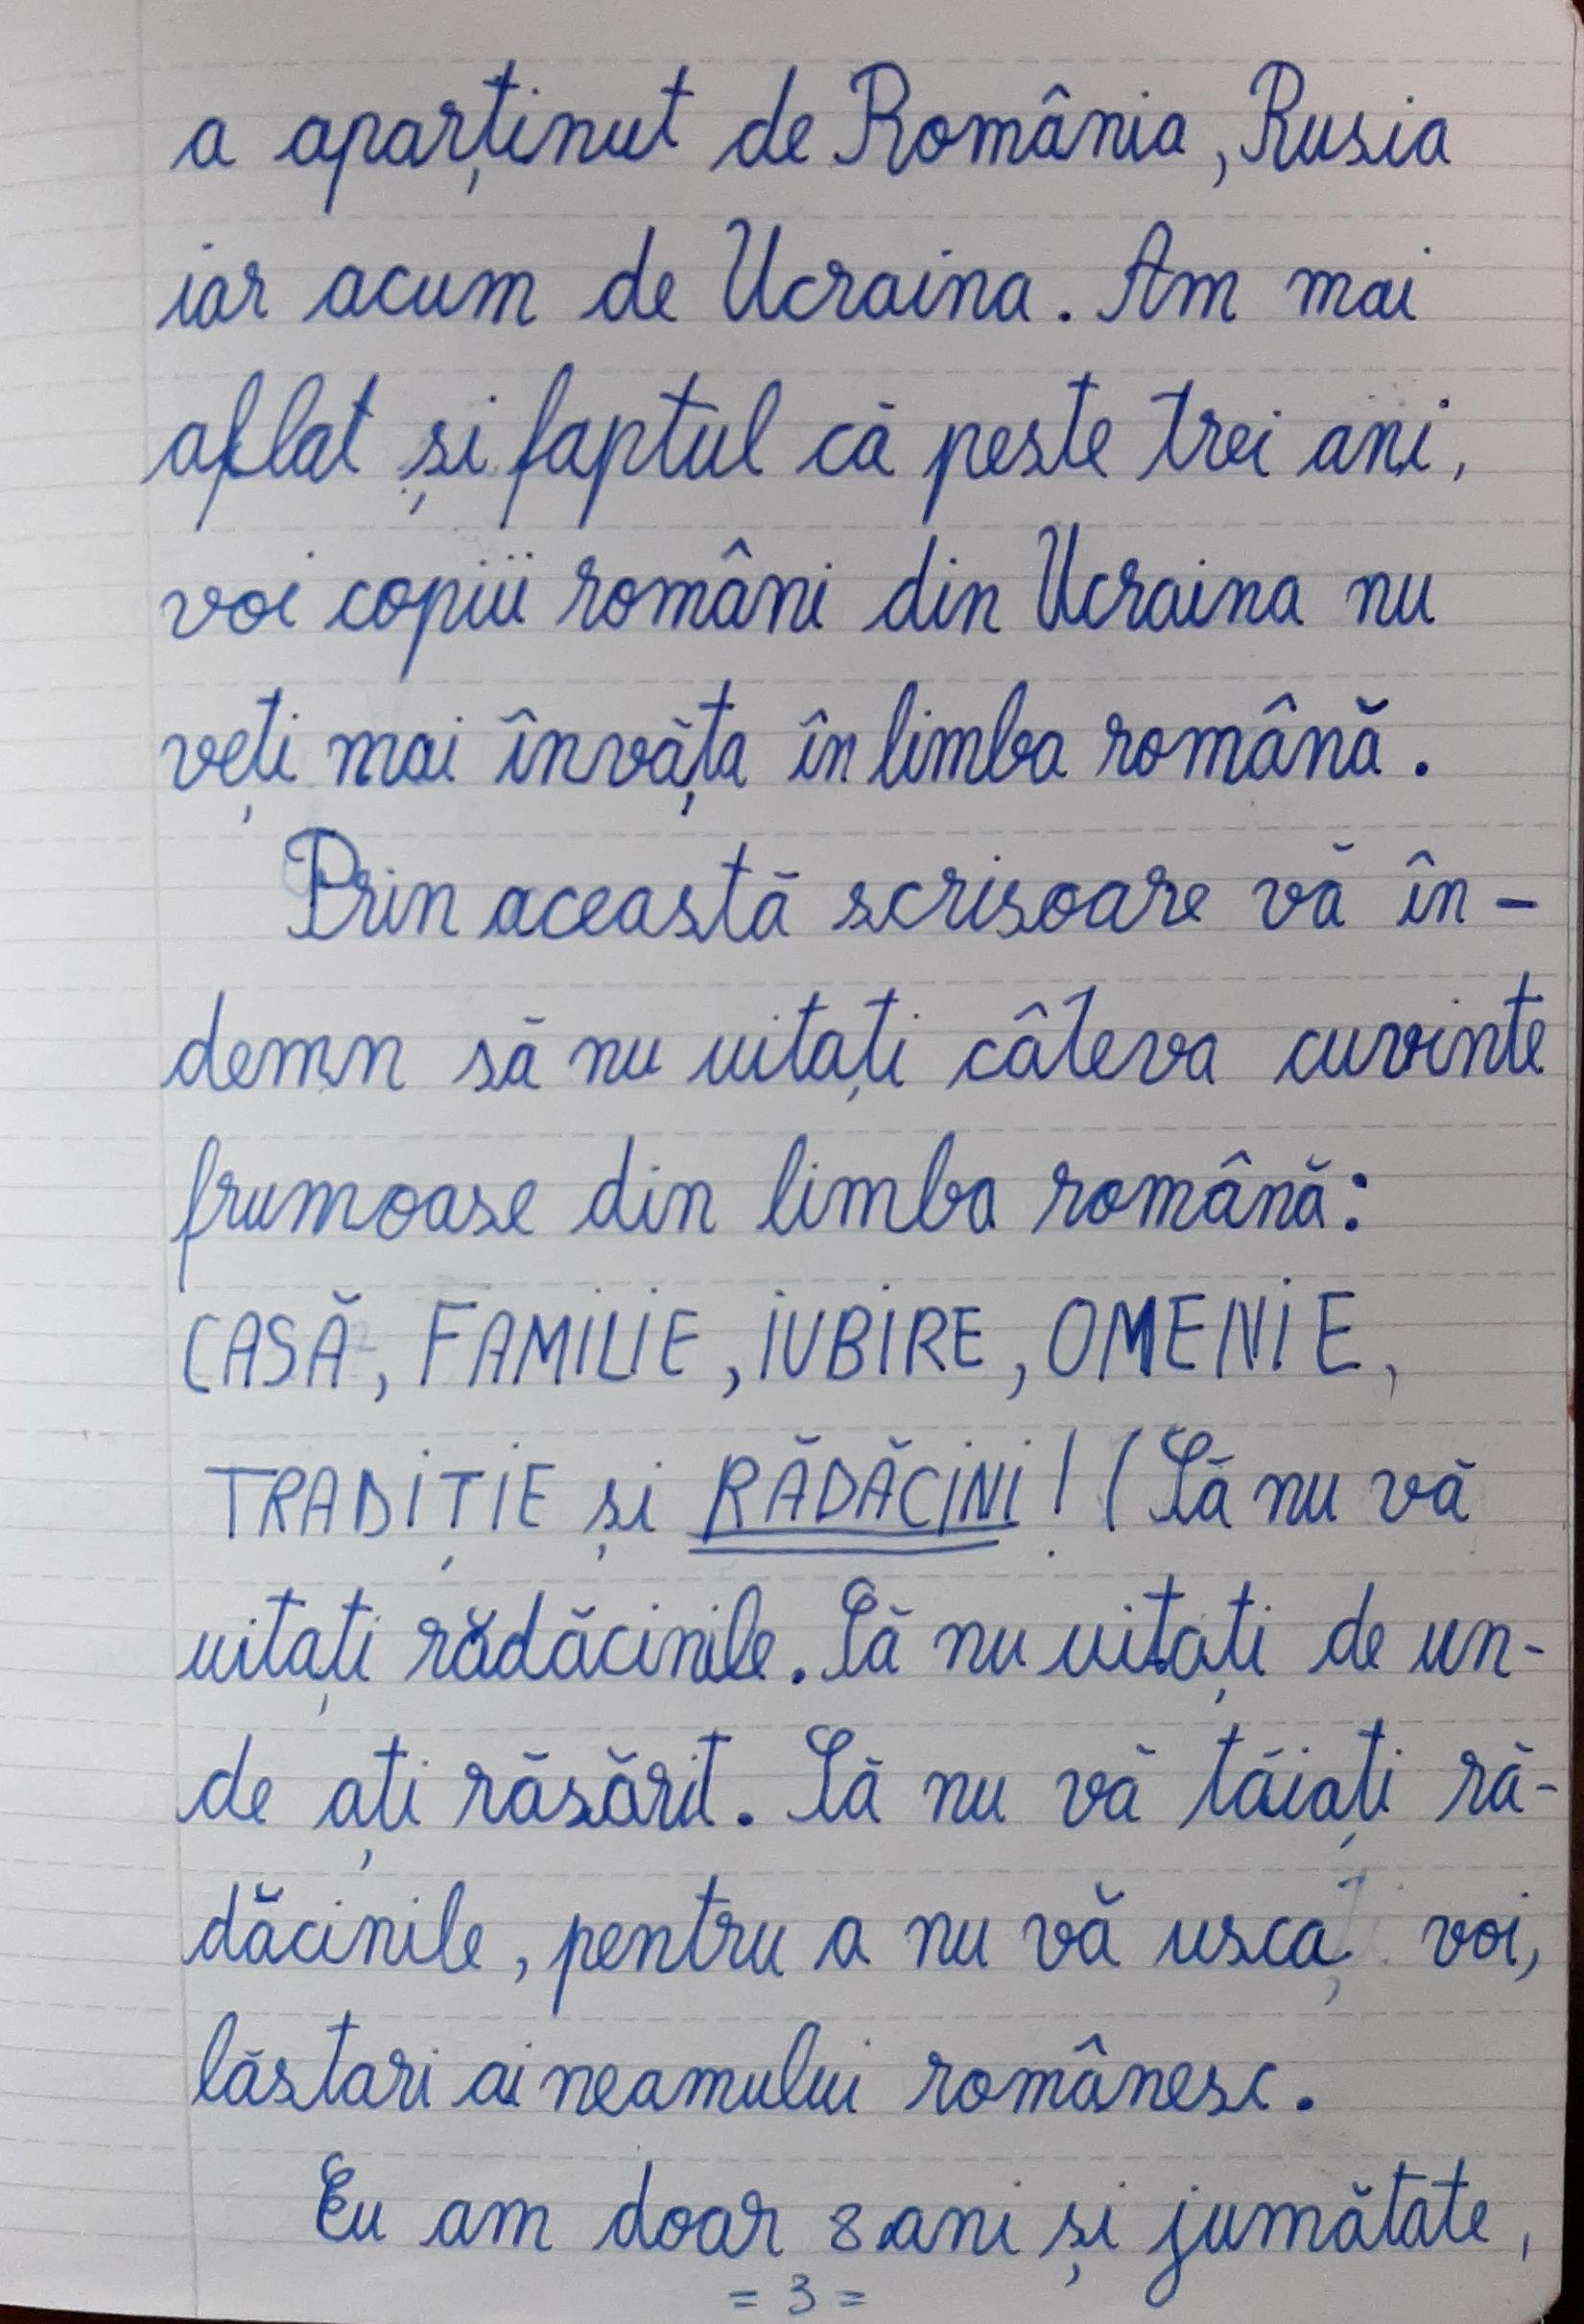 a aparținut de România, Rusia
iar acum de Ucraina. Am mai
aflat și faptul că peste trei ani,
voi copiii români din Ucraina nu
veți mai învăța în limba română.
Prin această scrisoare vă în-
demn să nu uitați câteva cuvinte
frumoase din limba română:
CASĂ, FAMILIE, IUBIRE, OMENIE,
TRADIȚIE și RĂDĂCINI! (Să nu vă
uitați rădăcinile. Să nu uitați de un-
de ați răsărit. Să nu vă tăiați ră-
dăcinile, pentru a nu vă usca voi,
lăstari ai neamului românesc.
Eu am doar 8 ani și jumătate,
= 3 =